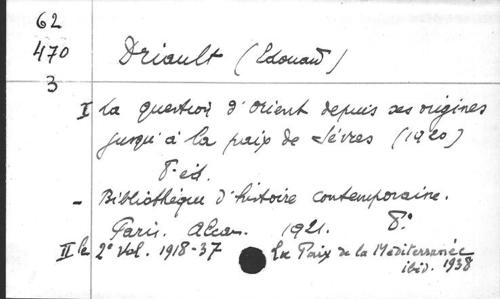 62
470
3
Driault (Edouard)
I La question d'Orient depuis ses origines
jusqu'à la paix de Sèvres (1920)
8e éd.
- Bibliothèque d'histoire contemporaine.
Paris. Alcan. 1921. 8°
II le 2e vol. 1918-37 La Paix de la Méditerranée
ibid. 1938